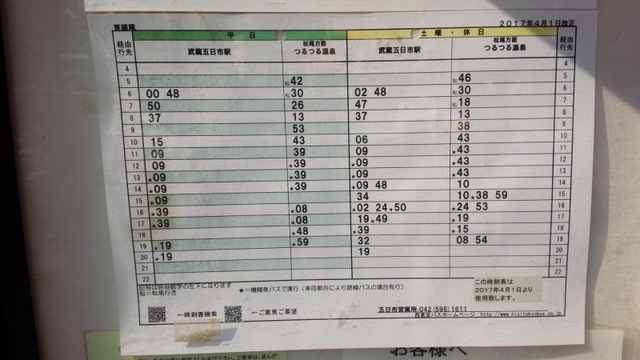 2017年4月1日改正
平日
土曜・休日
経由 行先 武蔵五日市駅 松尾方面 つるつる温泉 武蔵五日市駅 松尾方面 つるつる温泉 経由 行先
4 4
5 松42 松46 5
6 00 48 松30 02 48 松30 6
7 50 26 47 松18 7
8 37 13 37 13 8
9 53 38 9
10 15 43 06 43 10
11 09 39 09 ★43 11
12 09 ★39 ★09 ★43 12
13 ★09 ★39 ★09 ★43 13
14 ★09 ★39 ★09 48 10 14
15 ★09 34 10 ★38 59 15
16 ★39 ★08 ★02 24 ★50 ★24 53 16
17 ★39 ★08 ★19 ★49 ★19 17
18 ★48 ★39 ★15 18
19 ★19 ★59 32 08 54 19
20 ★19 19 20
21 21
22 22
記号は時刻数字の左下になります
松=松尾行き
★=機関車バスで運行(車両都合により路線バスの場合有り)
この時刻表は
2017年4月1日より
使用致します。
←時刻表検索
←ご意見ご要望
五日市営業所 042(596)1611
西東京バスホームページ http://www.nisitokyobus.co.jp
お客様へ